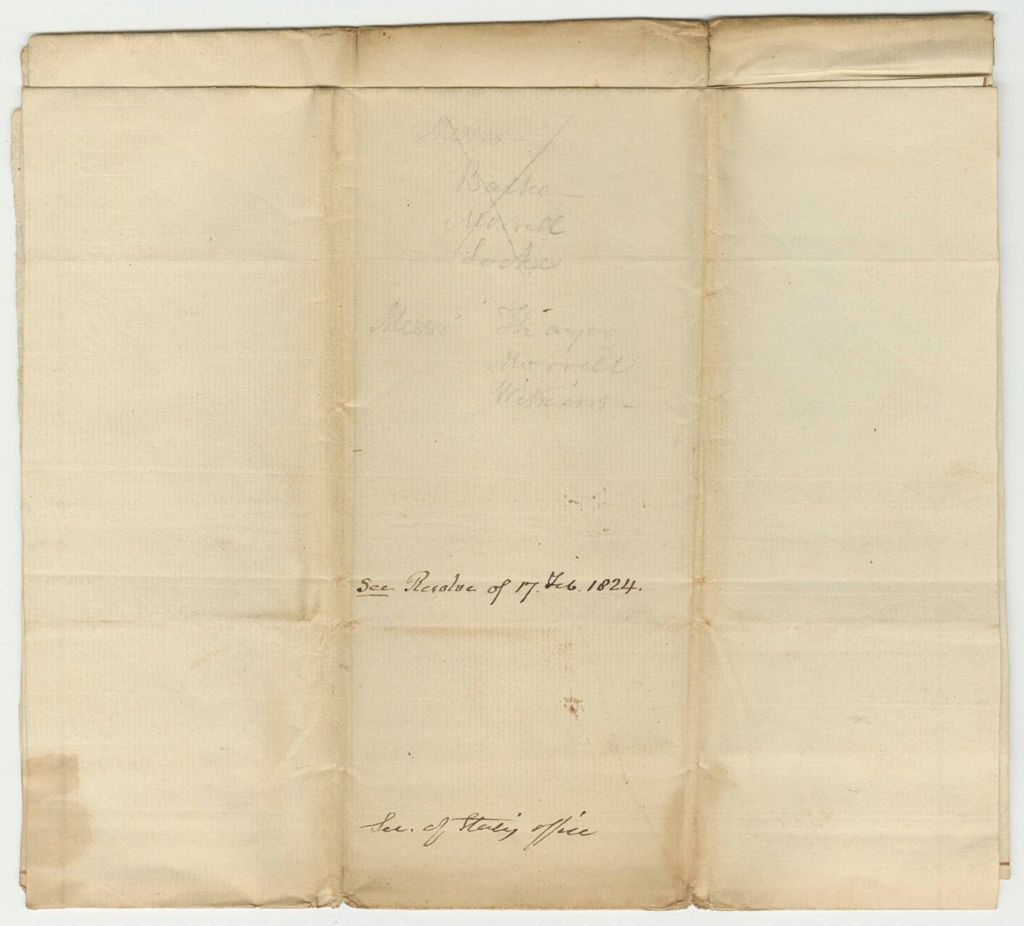 Messrs
Morrell
Messrs Thayer
Morrell
Williams -
See Resolve of 17. Feb. 1824.
Sec. of State's office